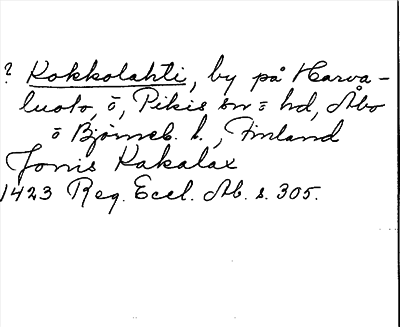 ? Kokkolahti, by på Harva-
luoto, ö, Pikis sn o hd, Åbo
o Björneb. l., Finland
Jonis Kakalax
1423 Reg. Eccl. Ab. s. 305.